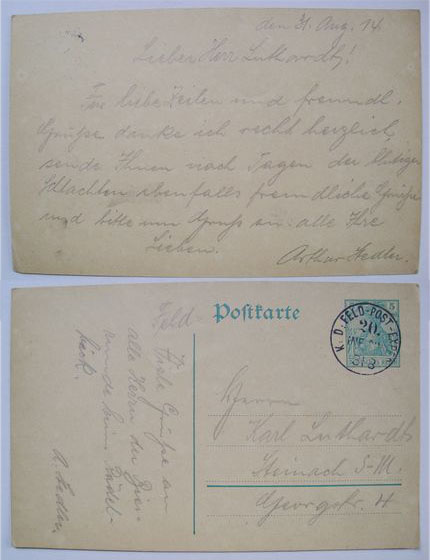 den 31. Aug. 14.
Lieber Herr Luthardt!
Für liebe Zeilen und freundl.
Grüße danke ich recht herzlich,
sende Ihnen nach Tagen der blutigen
Schlachten ebenfalls freundliche Grüße
und bitte um Gruß an alle Ihre
Lieben.
Arthur Fiedler.
Feld-
Postkarte
5
K. D. FELD-POST-EXP.
20.
31 8
Herrn
Karl Luthardt
Steinach S-M.
Georgstr. 4
Viele Grüße an
alle Herren der Bier-
runde beim
A. Fiedler